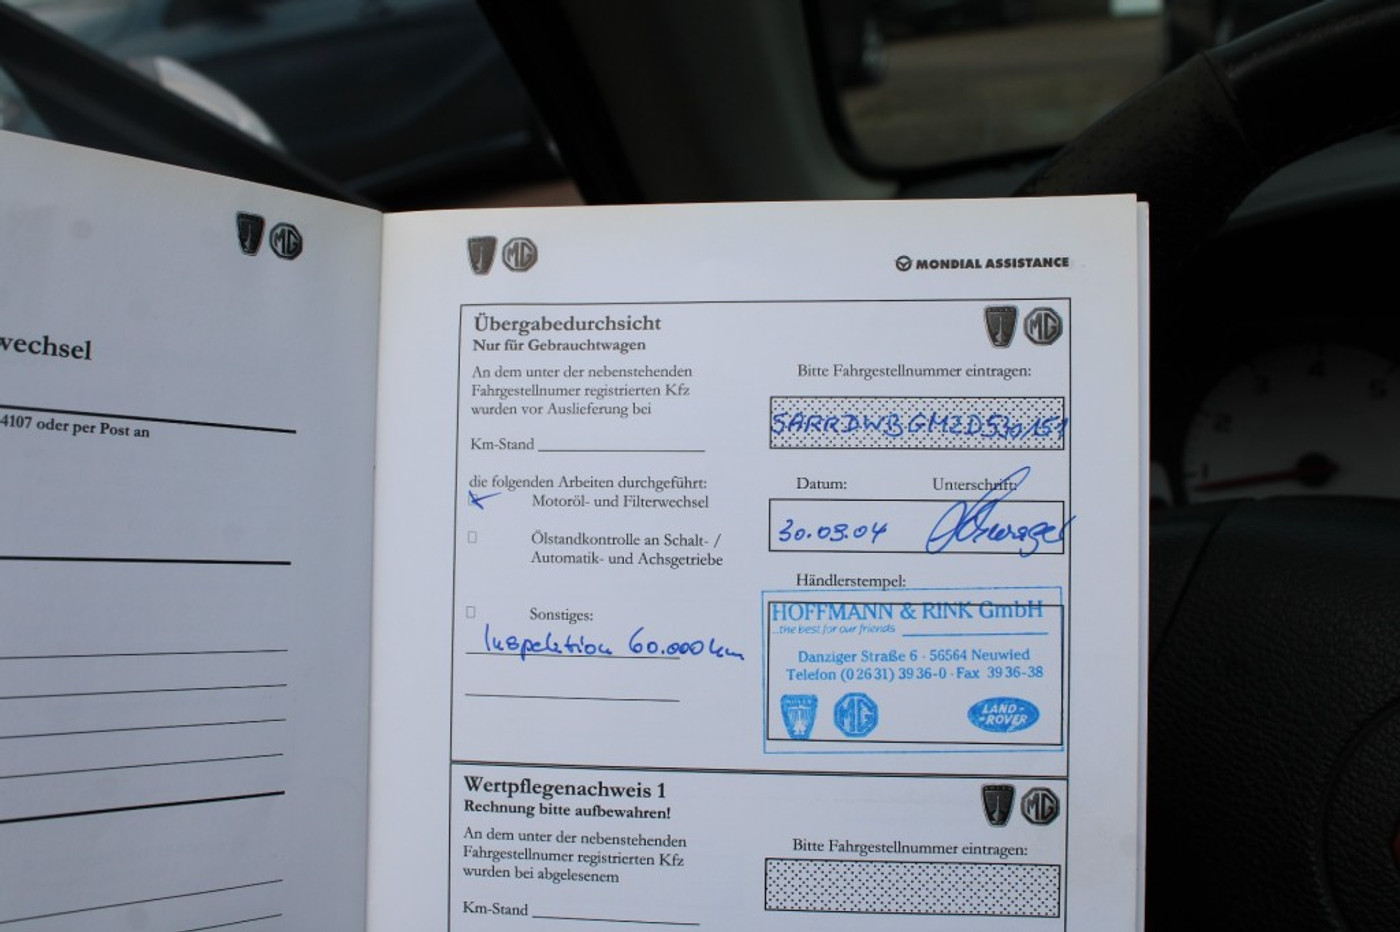 wechsel
4107 oder per Post an
MG
MG
MONDIAL ASSISTANCE
Übergabedurchsicht
Nur für Gebrauchtwagen
MG
An dem unter der nebenstehenden
Fahrgestellnumer registrierten Kfz
wurden vor Auslieferung bei
Bitte Fahrgestellnummer eintragen:
SARRDWBGMZD530151
Km-Stand
die folgenden Arbeiten durchgeführt:
Motoröl- und Filterwechsel
Datum: Unterschrift:
30.09.04
Ölstandkontrolle an Schalt- /
Automatik- und Achsgetriebe
Händlerstempel:
Sonstiges:
Inspektion 60.000 km
HOFFMANN & RINK GmbH
...the best for our friends
Danziger Straße 6 · 56564 Neuwied
Telefon (0 26 31) 39 36-0 · Fax 39 36-38
MG
LAND-
-ROVER
Wertpflegenachweis 1
Rechnung bitte aufbewahren!
MG
An dem unter der nebenstehenden
Fahrgestellnumer registrierten Kfz
wurden bei abgelesenem
Bitte Fahrgestellnummer eintragen:
Km-Stand